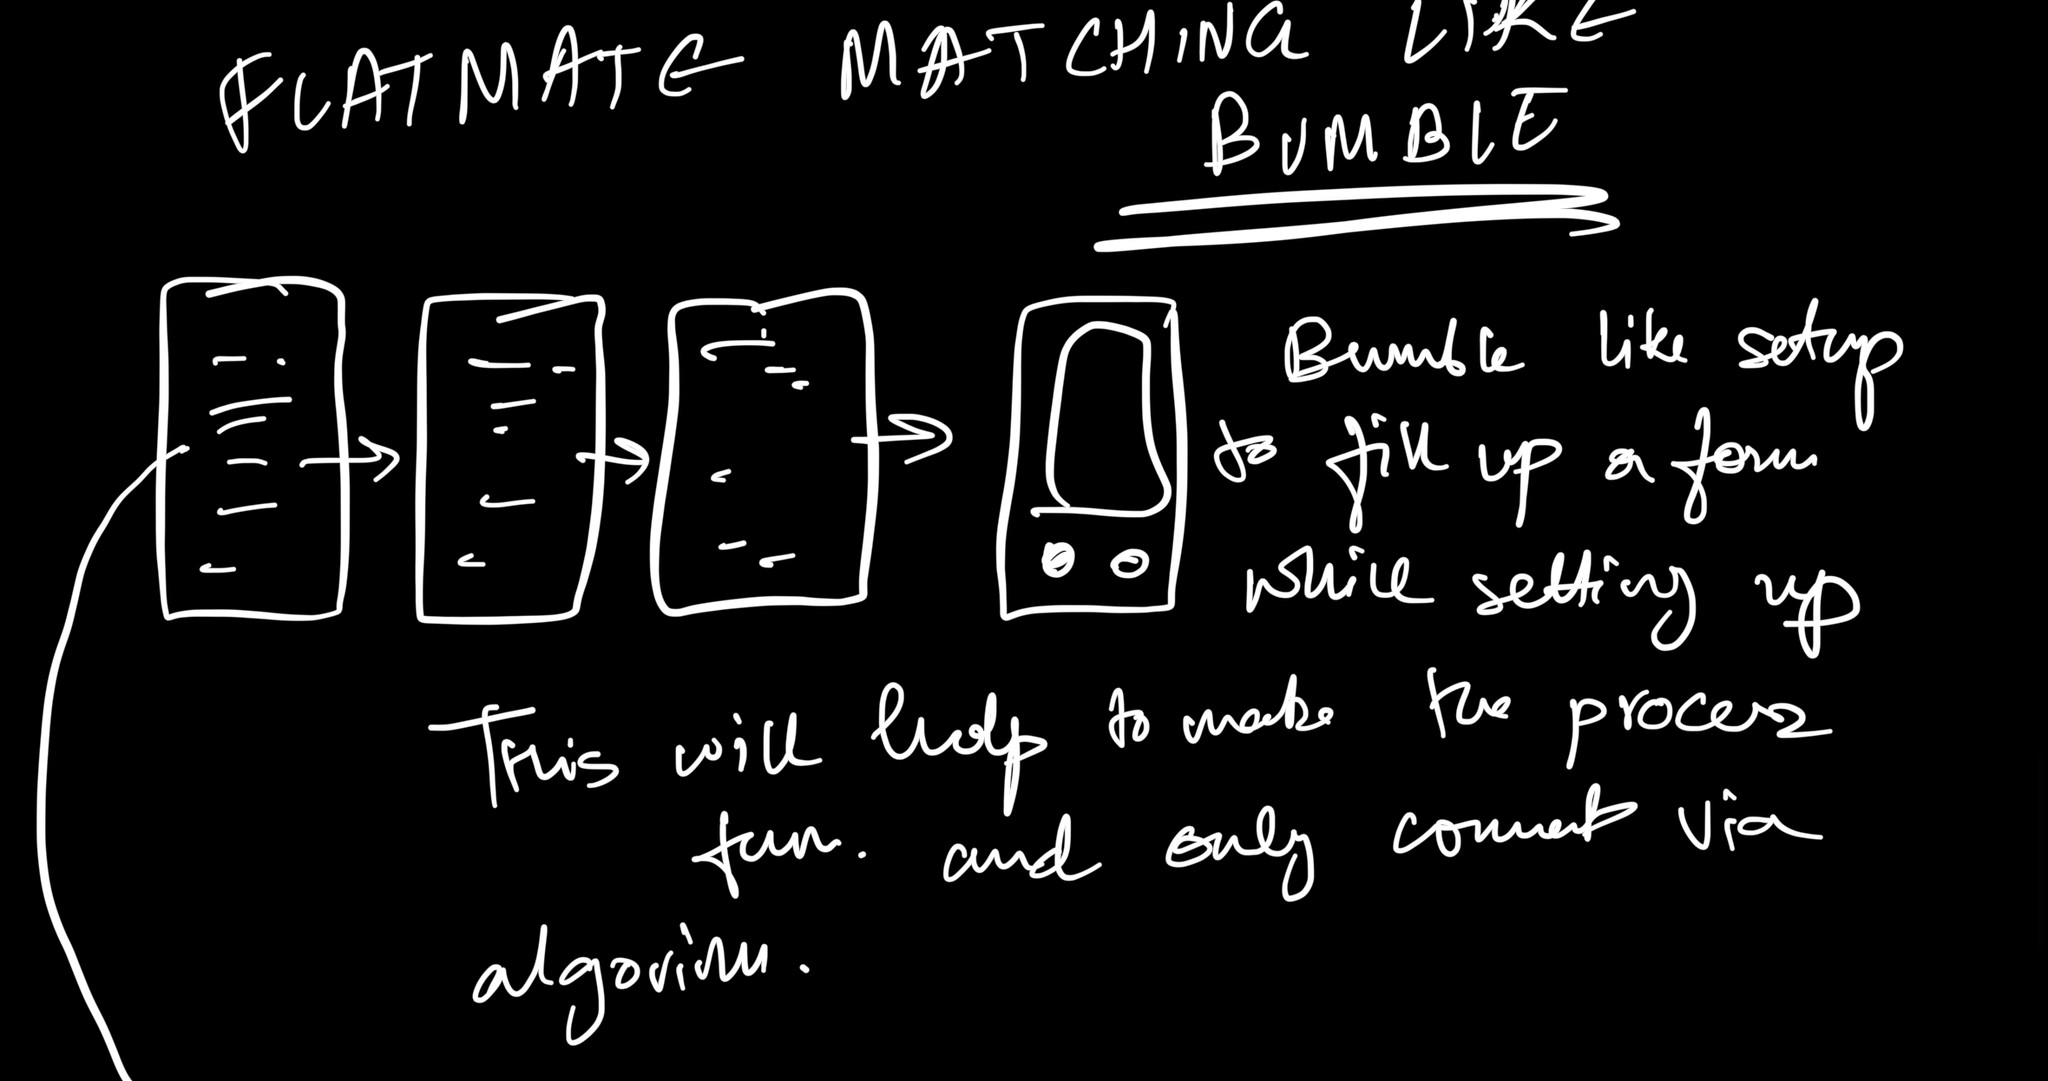 FLATMATE MATCHING LIKE
BUMBLE
Bumble like setup
to fill up a form
while setting up
This will help to make the process
fun. and only connect via
algorithm.